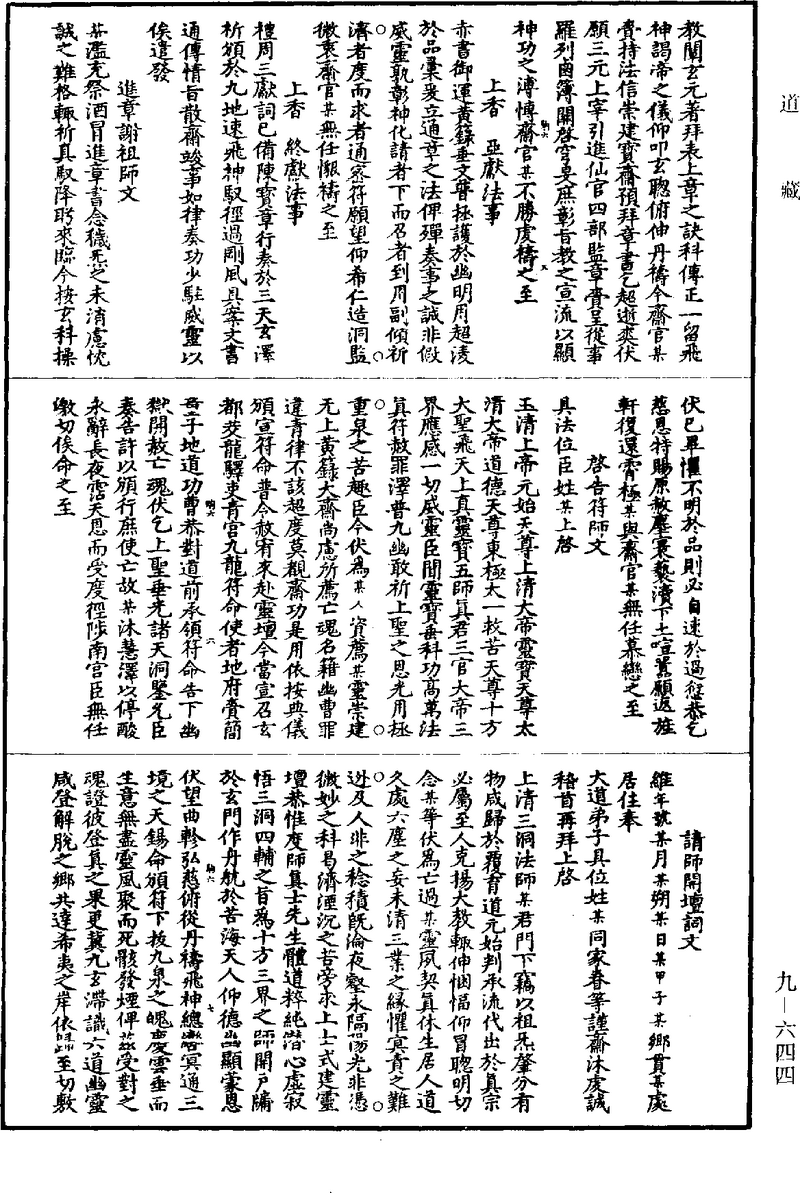 道藏
教闡玄元著拜表上章之訣科傳正一留飛
神謁帝之儀仰叩玄聰俯伸丹禱今齋官某
賫持法信崇建寶齋預拜章書乞超逝爽伏
願三元上宰引進仙官四部監章賫呈從事
羅列鹵簿開啓穹旻庶彰旨教之宣流以顯
神功之溥博齋官某不勝虔禱之至
上香　亞獻法事
赤書御運黃籙垂文普拯護於幽明用超淩
於品彙爰立通章之法俾殫奏事之誠非假
威靈孰彰神化請者下而召者到用副傾祈
濟者度而求者通察符願望仰希仁造洞監
微衷齋官某無任懇禱之至
上香　終獻法事
禮周三獻詞已備陳寶章行奏於三天玄澤
祈頒於九地速飛神馭徑過剛風具案文書
通傳情旨散齋竣事如律奏功少駐威靈以
俟遣發
進章謝祖師文
某濫充祭酒冒進章書念穢炁之未消慮忱
誠之難格輙祈真馭降眄來臨今按玄科操
伏已畢懼不明於品則必自速於過愆恭乞
慈恩特賜原赦塵寰褻瀆下土喧囂願返旌
軒復還霄極某與齋官某無任慕戀之至
啓告符師文
具法位臣姓某上啓
玉清上帝元始天尊上清大帝靈寶天尊太
清大帝道德天尊東極太一救苦天尊十方
大聖飛天上真靈寶五師真君三官大帝三
界應感一切威靈臣聞靈寶垂科功高萬法
真符赦罪澤普九幽敢祈上聖之恩光用拯
重泉之苦趣臣今伏為某人資薦某靈崇建
无上黃籙大齋尚慮所薦亡魂名籍幽曹罪
違青律不該超度莫觀齋功是用依按典儀
頒宣符命普令赦宥來赴靈壇今當宣召玄
都茭龍驛吏青宮九龍符命使者地府賫簡
童子地道功曹恭對道前承領符命告下幽
獄開赦亡魂伏乞上聖垂光諸天洞鑒允臣
奏告許以頒行庶使亡故某沐慧澤以停酸
永辭長夜霑天恩而受度徑陟南宮臣無任
激切俟命之至
請師開壇詞文
維年號某月某朔某日某甲子某鄉貫某處
居住奉
大道弟子具位姓某同家眷等謹齋沐虔誠
稽首再拜上啓
上清三洞法師某君門下竊以祖炁肇分有
物咸歸於覆育道元始判承流代出於真宗
必屬至人克揚大教輙伸悃愊仰冒聰明切
念某等伏為亡過某靈夙契真休生居人道
久處六塵之妄未清三業之緣懼冥責之難
逃及人非之稔積既淪夜壑永隔陽光非憑
微妙之科曷濟湮沉之苦旁求上士式建靈
壇恭惟度師真士先生體道粹純潛心虛寂
悟三洞四輔之旨為十方三界之師開戶牖
於玄門作丹航於苦海天人仰德幽顯蒙恩
伏望曲軫弘慈俯從丹禱飛神總濟冥通三
境之天錫命頒符下拔九泉之魄慶雲垂而
生意無盡靈風聚而死骸發煙俾茲受對之
魂證彼登真之果更冀九玄滯識六道幽靈
咸登解脫之鄉共達希夷之岸依歸至切敷
九—六四四